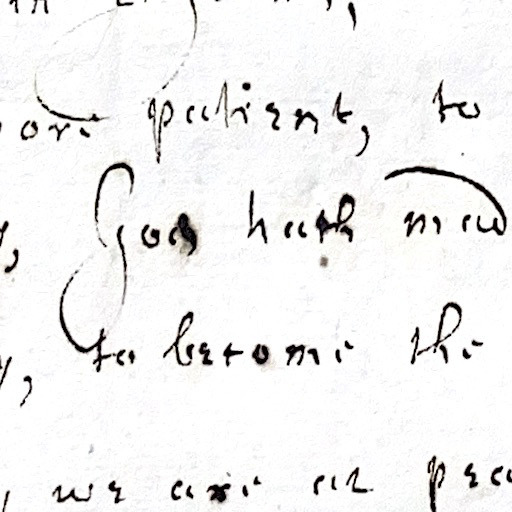 ore patient, to
, God hath mad
, to become the
, we are at pea